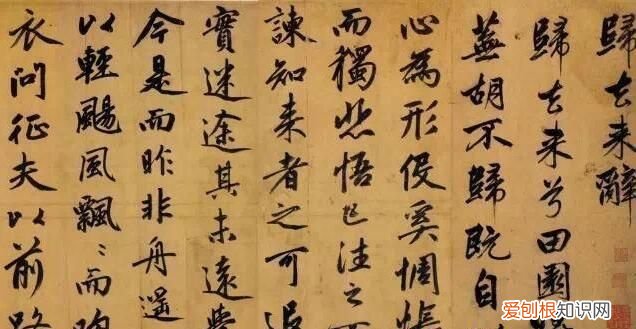 歸去来辭
歸去来兮田園
蕪胡不歸既自
心為形役奚惆悵
而獨悲悟已往之
諫知来者之可追
實迷途其未遠覺
今是而昨非舟遥
以輕颺風飄〻而吹
衣問征夫以前路
爱刨根知识网